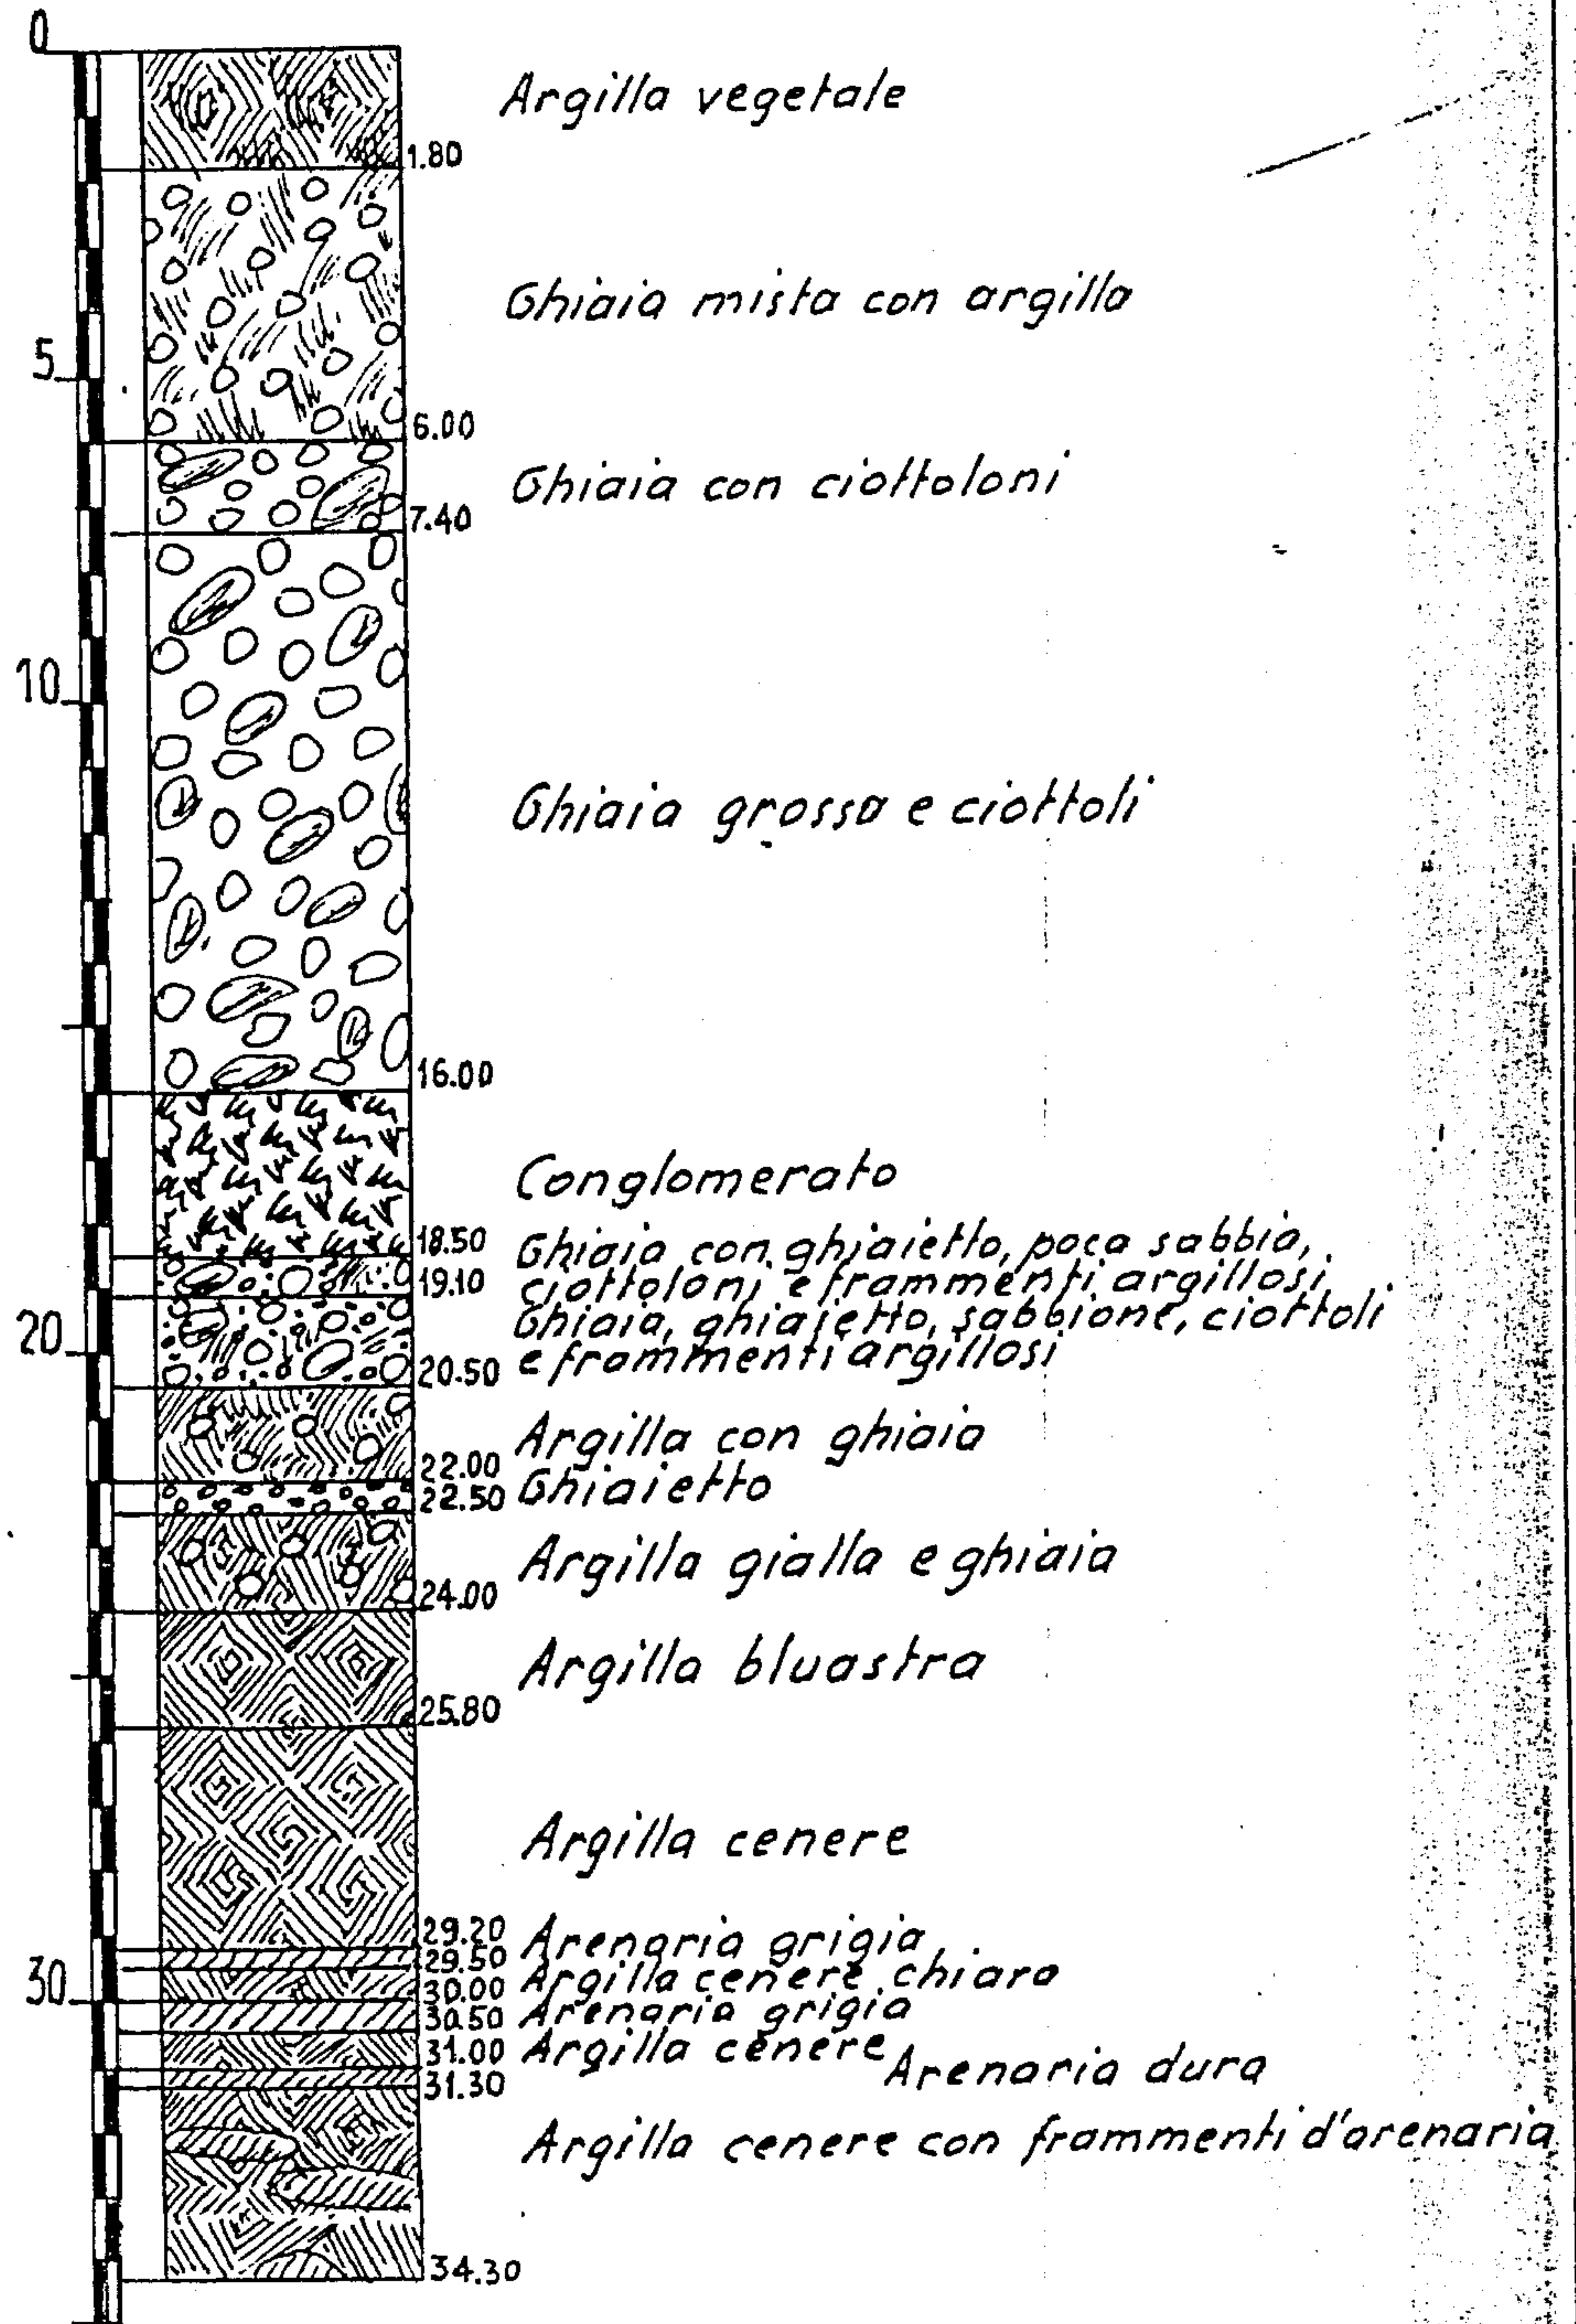 0
Argilla vegetale
1.80
Ghiaia mista con argilla
5
6.00
Ghiaia con ciottoloni
7.40
10
Ghiaia grossa e ciottoli
16.00
Conglomerato
18.50
Ghiaia con ghiaietto, poca sabbia,
ciottoloni e frammenti argillosi
19.10
Ghiaia, ghiaietto, sabbione, ciottoli
20
e frammenti argillosi
20.50
Argilla con ghiaia
22.00
Ghiaietto
22.50
Argilla gialla e ghiaia
24.00
Argilla bluastra
25.80
Argilla cenere
29.20
Arenaria grigia
29.50
Argilla cenere chiara
30
30.00
Arenaria grigia
30.50
Argilla cenere
31.00
Arenaria dura
31.30
Argilla cenere con frammenti d'arenaria
34.30